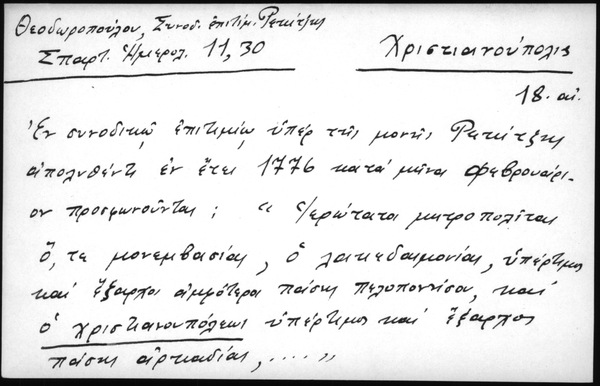 Θεοδωροπούλου, Συνοδ. ἐπιτίμ. Ρεκίτζης
Σπαρτ. Ἡμερολ. 11, 30
Χριστιανούπολις
18. αἰ.
Ἐν συνοδικῷ ἐπιτιμίῳ ὑπέρ τῆς μονῆς Ρεκίτζης
ἀπολυθέντι ἐν ἔτει 1776 κατά μῆνα φεβρουάρι-
ον προσφωνοῦνται; " ἱερώτατοι μητροπολῖται
ὅ, τε μονεμβασίας, ὁ λακεδαιμονίας, ὑπέρτιμοι
καί ἔξαρχοι ἀμφότεροι πάσης πελοποννήσου, καί
ὁ χριστιανουπόλεως ὑπέρτιμος καί ἔξαρχος
πάσης ἀρκαδίας, ..... "